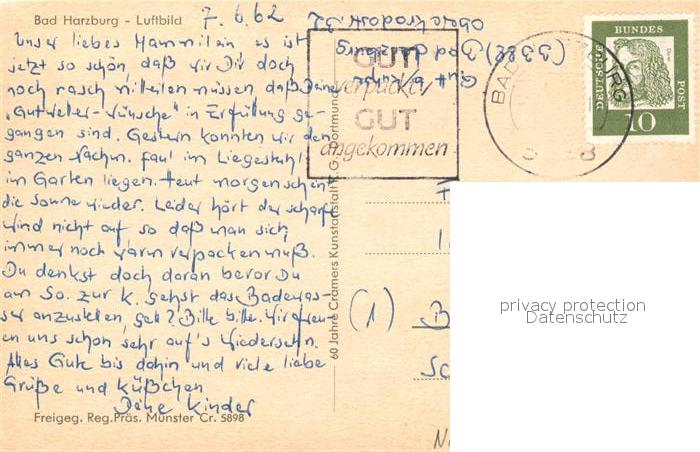 Bad Harzburg - Luftbild
7.6.62
Unser liebes Mammilein, es ist
jetzt so schön, daß wir Dir doch
noch rasch mitteilen müssen, daß Deine
„Gutwetter-Wünsche" in Erfüllung ge-
gangen sind. Gestern konnten wir den
ganzen Nachm. faul im Liegestuhl
im Garten liegen. Heut morgen schein
die Sonne wieder. Leider hört der scharfe
Wind nicht auf so daß man sich
immer noch warm verpacken muß.
Du denkst doch daran bevor Du
am So. zur K. gehst das Badewas-
ser anzustellen, gell? Bitte bitte. Wir freu-
en uns schon sehr auf's Wiedersehn.
Alles Gute bis dahin und viele liebe
Grüße und Küßchen
Deine Kinder
Freigeg. Reg.Präs. Münster Cr. 5898
60 Jahre Cramers Kunstanstalt K.G., Dortmund
(3388) Bad Harzburg
GUT
verpackt
GUT
angekommen
BAD HARZBURG
DEUTSCHE BUNDESPOST
10
(1)
privacy protection
Datenschutz